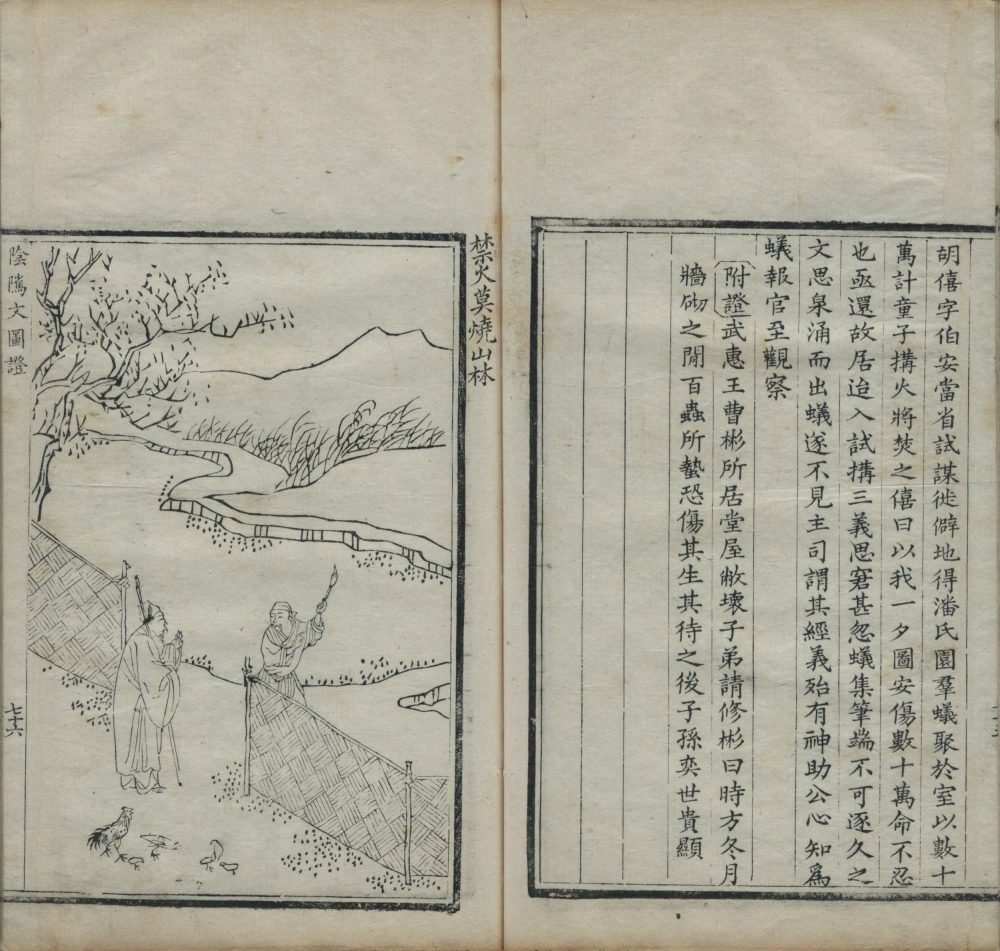 胡僖字伯安當省試謀徙僻地得潘氏園羣蟻聚於室以數十
萬計童子搆火將焚之僖曰以我一夕圖安傷數十萬命不忍
也亟還故居迨入試搆三義思窘甚忽蟻集筆端不可逐久之
文思泉涌而出蟻遂不見主司謂其經義殆有神助公心知爲
蟻報官至觀察
附證武惠王曹彬所居堂屋敝壞子弟請修彬曰時方冬月
牆砌之閒百蟲所蟄恐傷其生其待之後子孫奕世貴顯
禁火莫燒山林
陰隲文圖證
七十六